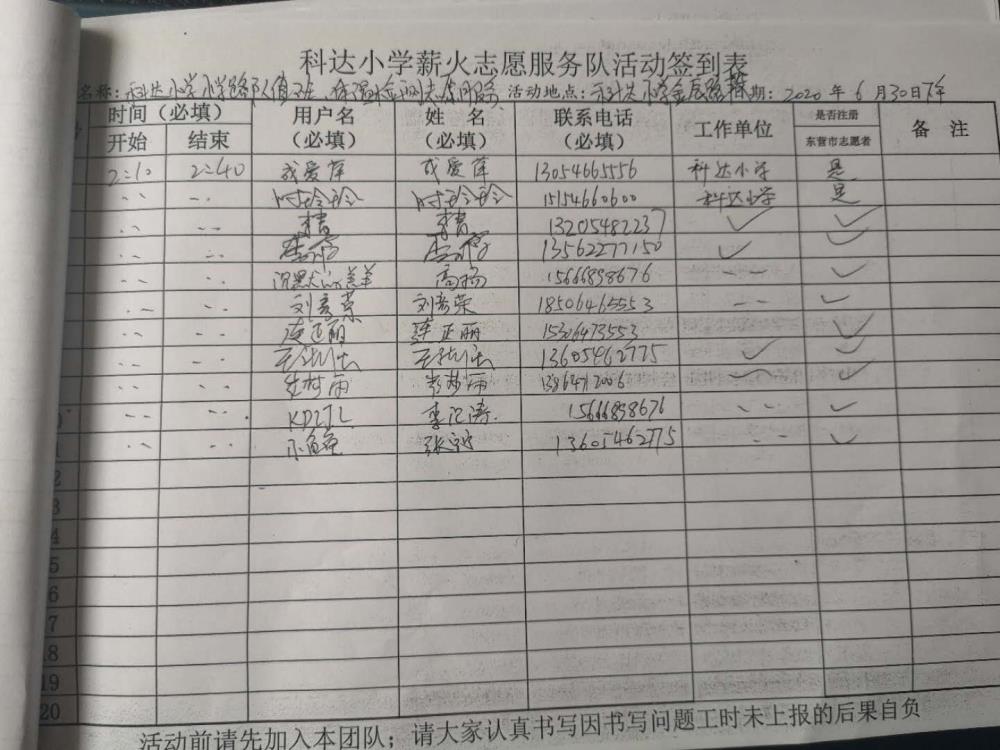 科达小学薪火志愿服务队活动签到表
名称：科达小学小学路队值班 体温检测志愿服务 活动地点：科达小学金辰路 期：2020年6月30日下午
时间（必填） 用户名（必填） 姓 名（必填） 联系电话（必填） 工作单位 是否注册东营市志愿者 备 注
开始 结束
2:10 2:40 戎爱萍 戎爱萍 13054665556 科达小学 是
时玲玲 时玲玲 15154660600 科达小学 是
13205482237 ✓ ✓
13562277150 ✓ ✓
沉默的羔羊 高扬 15666898676 ✓
刘彦荣 刘彦荣 18506465553 ✓
连正丽 连正丽 15326473553 ✓
13605462775 ✓ ✓
✓
KDLJL 李记涛 15666898676 ✓
小鱼 13605462775 ✓
2
3
4
5
6
7
18
19
20
活动前请先加入本团队；请大家认真书写因书写问题工时未上报的后果自负